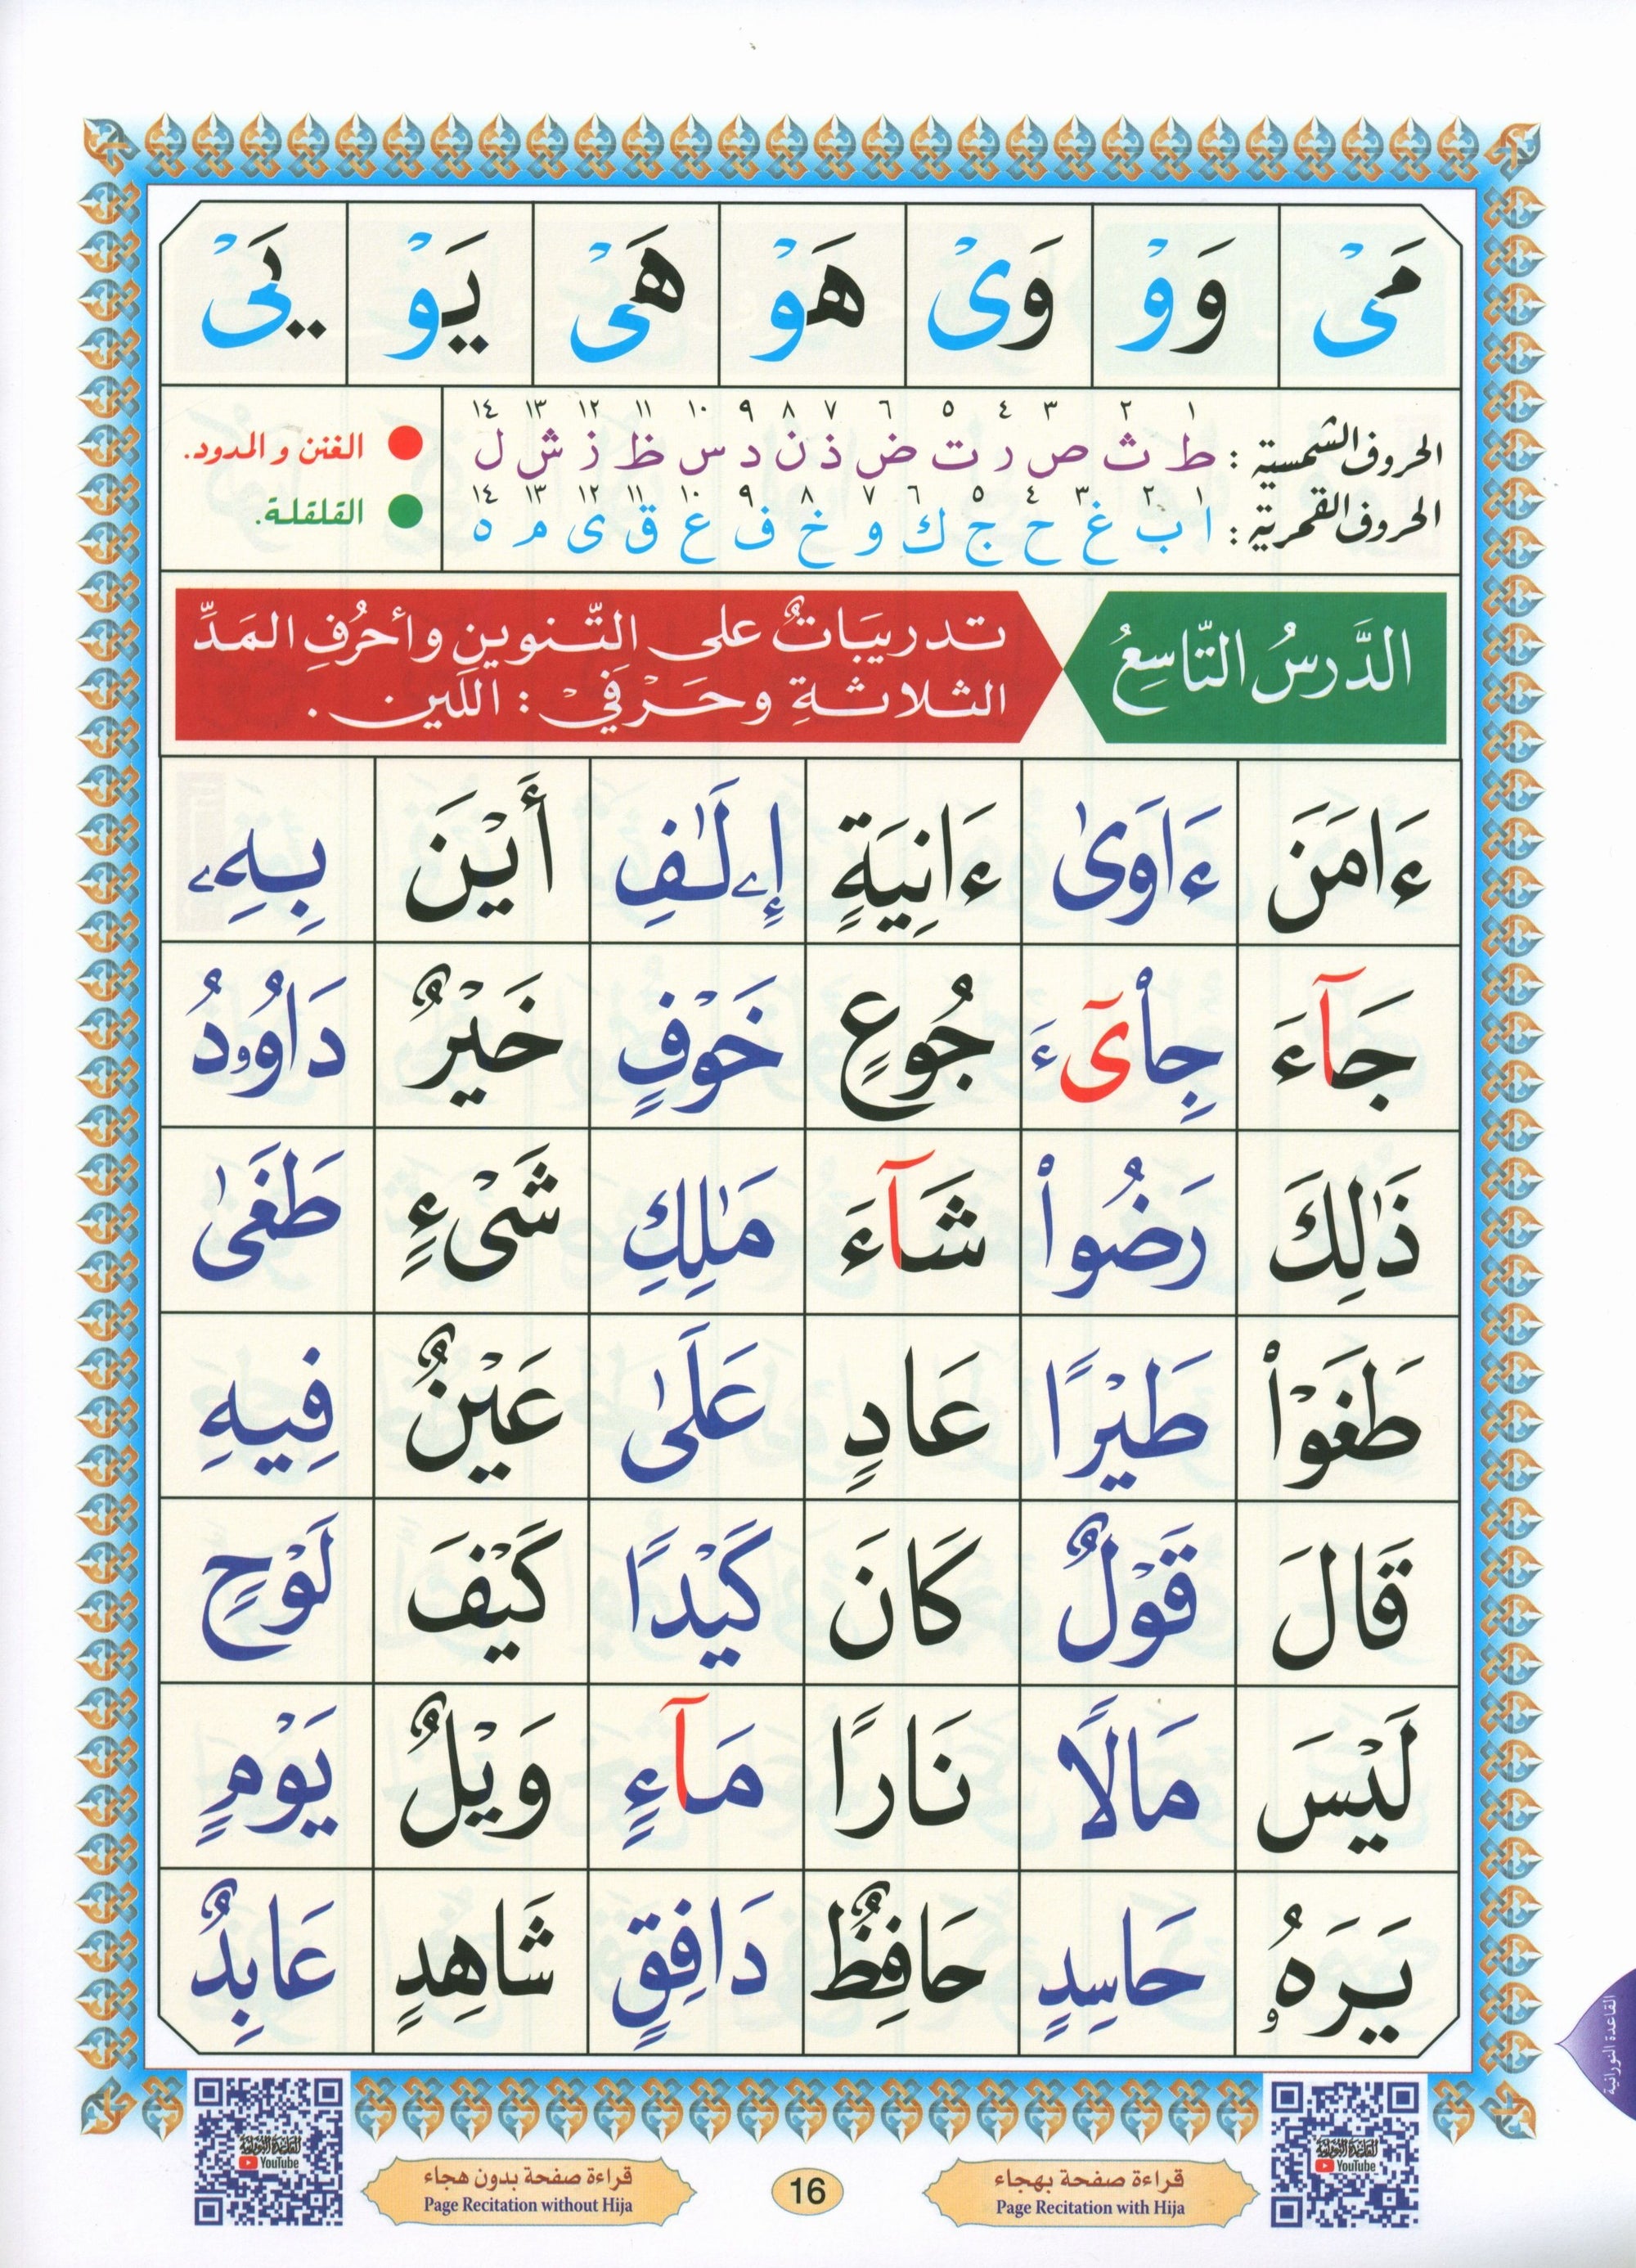 مَىْ وَوْ وَىْ هَوْ هَىْ يَوْ يَىْ
١ ٢ ٣ ٤ ٥ ٦ ٧ ٨ ٩ ١٠ ١١ ١٢ ١٣ ١٤
الحروف الشمسية : ط ث ص ر ت ض ذ ن د س ظ ز ش ل
الغنن و المدود.
١ ٢ ٣ ٤ ٥ ٦ ٧ ٨ ٩ ١٠ ١١ ١٢ ١٣ ١٤
الحروف القمرية : ا ب غ ح ج ك و خ ف ع ق ى م ه
القلقلة.
الدَّرسُ التّاسِعُ
تدريبَاتٌ على التّنوينِ وأحرُفِ المَدِّ
الثلاثةِ وحَرْفَيْ : اللّين .
ءَامَنَ ءَاوَىٰ ءَانِيَةٍ إِۦلَٰفِ أَيْنَ بِهِۦ
جَآءَ جِا۟ىٓءَ جُوعٍ خَوْفٍ خَيْرٌ دَاوُۥدُ
ذَٰلِكَ رَضُوا۟ شَآءَ مَٰلِكِ شَىْءٍ طَغَىٰ
طَغَوْا۟ طَيْرًا عَادٍ عَلَىٰ عَيْنٌ فِيهِ
قَالَ قَوْلٌ كَانَ كَيْدًا كَيْفَ لَوْحٍ
لَيْسَ مَالًا نَارًا مَآءٍ وَيْلٌ يَوْمٍ
يَرَهُۥ حَاسِدٍ حَافِظٌ دَافِقٍ شَاهِدٍ عَابِدٌ
القاعدة النورانية
القاعدة النورانية
YouTube
قراءة صفحة بهجاء
Page Recitation with Hija
16
قراءة صفحة بدون هجاء
Page Recitation without Hija
القاعدة النورانية
YouTube